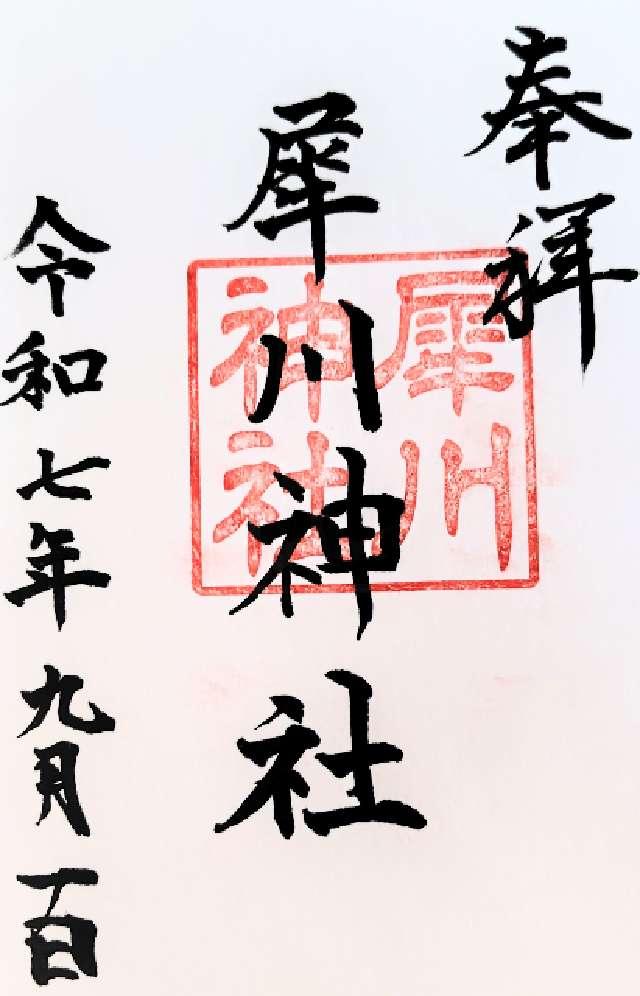 奉拝
犀川神社
令和七年九月一日
犀川
神社